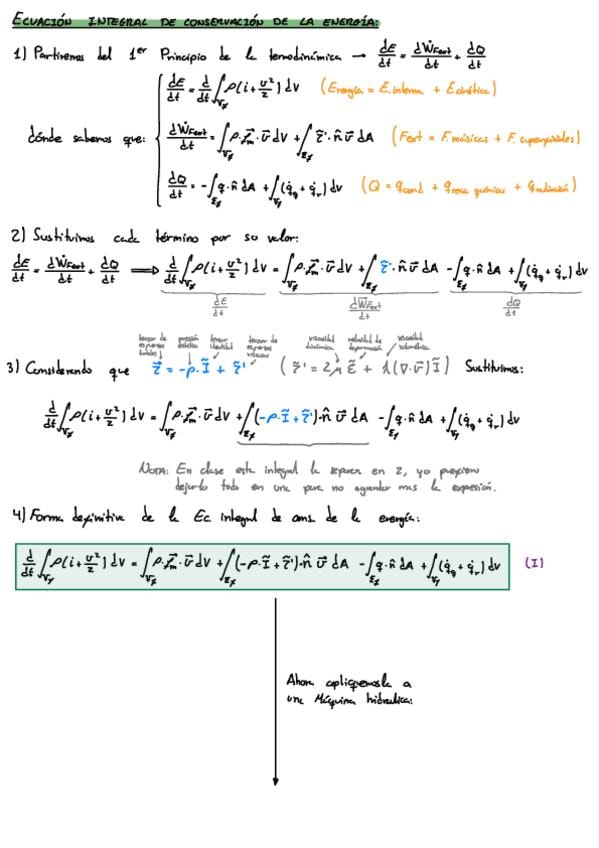 ECUACIÓN INTEGRAL DE CONSERVACIÓN DE LA ENERGÍA:
1) Partiremos del 1er Principio de la termodinámica → dE/dt = dẆFext/dt + dQ/dt
dE/dt = d/dt ∫Vf ρ(i + v²/2) dV (Energía = E.interna + E.cinética)
dónde sabemos que: dẆFext/dt = ∫Vf ρ·f⃗m·v⃗ dV + ∫Σf τ̃·n̂ v⃗ dA (Fext = F.másicas + F. superficiales)
dQ/dt = -∫Σf q·n̂ dA + ∫Vf (q̇q + q̇r) dV (Q = qcond + qreac químicas + qradiación)
2) Sustituimos cada término por su valor:
dE/dt = dẆFext/dt + dQ/dt ⟹ d/dt ∫Vf ρ(i + v²/2) dV = ∫Vf ρ·f⃗m·v⃗ dV + ∫Σf τ̃·n̂ v⃗ dA - ∫Σf q·n̂ dA + ∫Vf (q̇q + q̇r) dV
dE/dt dẆFext/dt dQ/dt
tensor de esfuerzos totales presión estática tensor identidad tensor de esfuerzos viscosos viscosidad dinámica velocidad de deformación viscosidad volumétrica
3) Considerando que τ̃ = -p·Ĩ + τ̃' (τ̃' = 2μ ε̃ + λ(∇·v⃗)Ĩ) Sustituimos:
d/dt ∫Vf ρ(i + v²/2) dV = ∫Vf ρ·f⃗m·v⃗ dV + ∫Σf (-p·Ĩ + τ̃')·n̂ v⃗ dA - ∫Σf q·n̂ dA + ∫Vf (q̇q + q̇r) dV
NOTA: En clase esta integral la separan en 2, yo prefiero
dejarlo todo en una para no agrandar mas la expresión.
4) Forma definitiva de la Ec integral de cons. de la energía:
d/dt ∫Vf ρ(i + v²/2) dV = ∫Vf ρ·f⃗m·v⃗ dV + ∫Σf (-p·Ĩ + τ̃')·n̂ v⃗ dA - ∫Σf q·n̂ dA + ∫Vf (q̇q + q̇r) dV (I)
Ahora apliquemosla a
una Máquina hidraulica: